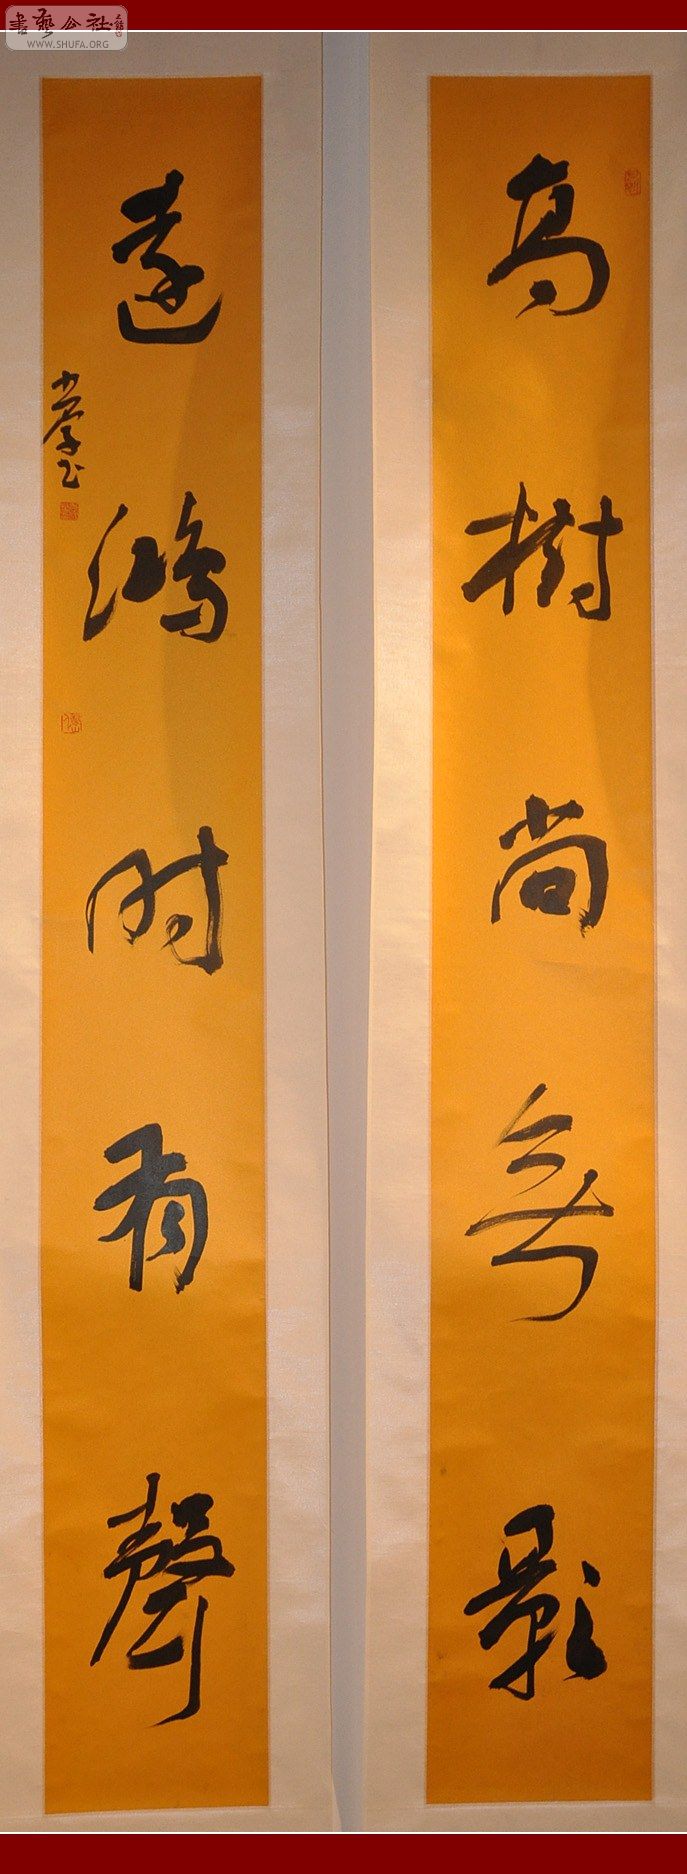 書藝公社
WWW.SHUFA.ORG
高樹尚無影
遠鴻时有聲